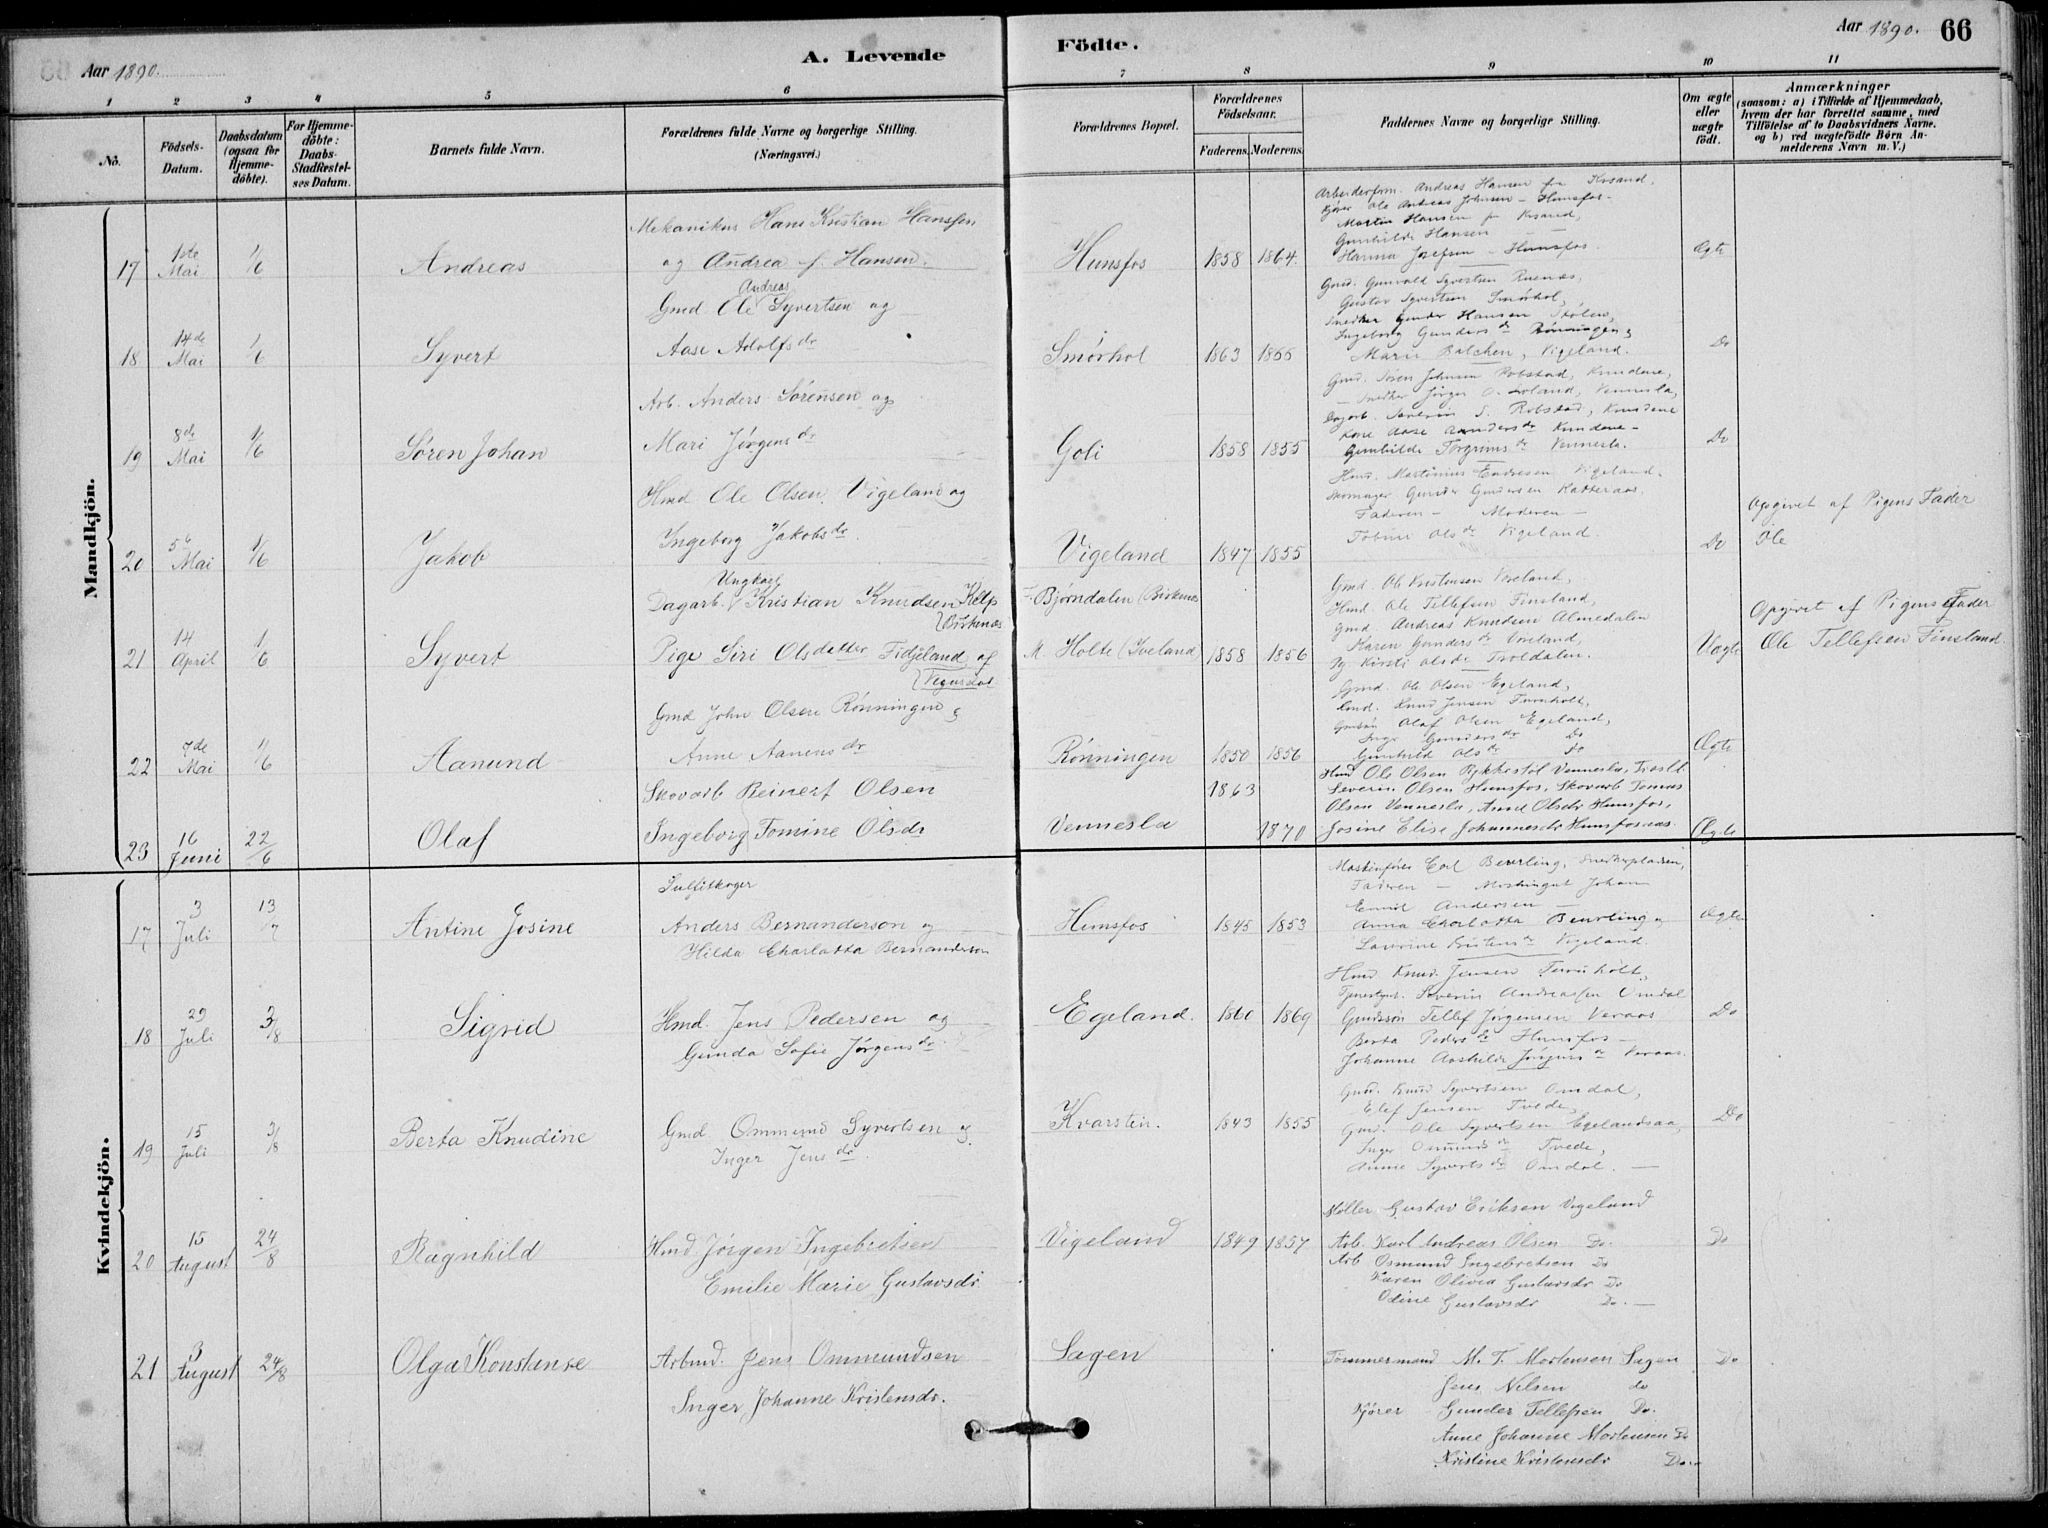 Aar 1890.
A. Levende
Födte.
Aar 1890. 66
1 2 3 4 5 6 7 8 9 10 11
No.
Födsels-Datum.
Daabsdatum (ogsaa for Hjemme-döbte).
For Hjemme-döbte: Daabs-Stadfæstel-ses Datum.
Barnets fulde Navn.
Forældrenes fulde Navne og borgerlige Stilling. (Næringsvei.)
Forældrenes Bopæl.
Forældrenes Födselsaar.
Faderens. Moderens.
Faddernes Navne og borgerlige Stilling.
Om ægte eller uægte födt.
Anmærkninger
(saasom: a) i Tilfælde af Hjemmedaab,
hvem der har forrettet samme, med
Tilföielse af to Daabsvidners Navne,
og b) ved uægtefödte Börn An-
melderens Navn m. V.)
Mandkjön.
17 1ste Mai 1/6 Andreas
Mekanikus Hans Kristian Hansen
og Andrea f. Hansen.
Hunsfos 1858 1864.
Arbeiderfom. Andreas Hansen fra Krsand,
Kjører Ole Andreas Johnsen - Hunsfos -
Martin Hansen fr Krsand,
Gunhilde Hansen
Hanna Josefsen - Hunsfos.
Ægte
18 14de Mai 1/6 Syvert
Gmd Ole Andreas Syvertsen og
Aase Adolfsdr
Smørhol 1863 1866
Gmd. Gunvald Syvertsen
Gustav Syvertsen Smørhol,
Snedker Gunder Hansen
Ingeborg Gundersdr Rønningen,
Marie Balchen, Vigeland.
Do
19 8de Mai 1/6 Søren Johan
Arb. Anders Sørensen og
Mari Jørgensdr
Goli 1858 1855
Gmd. Søren Johnsen Robstad,
Snedker Jørgen Vennesla,
Dagarb. Severin S. Robstad,
Kone Aase
Gunhilde Torgrimsdr Vennesla.
Do
20 Mai 1/6 Jakob
Hmd Ole Olsen Vigeland og
Ingeborg Jakobsdr.
Vigeland 1847 1855
Hmd. Martinius Endresen Vigeland.
Skomager Gunder Gundersen
Faderen - Moderen -
Tobine Olsdr Vigeland.
Do
Opgivet af Pigens Fader
Ole
21 14 April 1/6 Syvert
Dagarb. Ungkarl Kristian Knudsen
Birkenæs
Pige Siri Olsdatter Fidjeland af
Vegusdal
F. Bjørndalen (Birkenæs
M. Holte (Iveland) 1858 1856
Gmd. Ole Kristensen
Hmd. Ole Tellefsen Finsland,
Gmd. Andreas Knudsen Almedalen
Karen Gundersdr
Pg Kirsti Olsdr Troldalen.
Uægte
Opgivet af Pigens Fader
Ole Tellefsen Finsland.
22 7de Mai 1/6 Aanund
Gmd John Olsen Rønningen &
Anne Aanensdr
Rønningen 1850 1856
Gmd. Ole Olsen Egeland,
Gmd. Knud Jensen Furuholt,
Olaf Olsen Egeland,
Inger Gundersdr Do
Gunhild Olsdr Do
Ægte
23 16 Juni 22/6 Olaf
Skovarb Reinert Olsen
Ingeborg Tomine Olsdr
Vennesla 1863 1870
Hmd Ole Olsen Vennesla,
Severin Olsen Hunsfos, Skovarb Tomas
Olsen Vennesla, Anne Olsdr Hunsfos,
Josine Elise Johannesdr
Ægte
Kvindekjön.
17 3 Juli 13/7 Antine Josine
Sulfitkoger
Anders Bernanderson og
Hilda Charlotta Bernanderson
Hunsfos 1845 1853
Maskinfører Carl Beurling,
Faderen - Johan
Emil Andersen -
Anna Charlotta Beurling
Laurine Vigeland.
Ægte
18 29 Juli 3/8 Sigrid
Hmd. Jens Pedersen og
Gunda Sofie Jørgensdr.
Egeland. 1860 1869
Hmd Knud Jensen Furuholt,
Severin Andreassen Omdal
Gmdssøn Tellef Jørgensen Veraas
Berta Pedersdr Hunsfos -
Johanne Aashilde Jørgensdr Veraas.
Do
19 15 Juli 3/8 Berta Knudine
Gmd Ommund Syvertsen og
Inger Jensdr.
Kvarstein. 1843 1855
Gmd. Knud Syvertsen Omdal,
Elef Jensen Tvede,
Gmd. Ole Syvertsen Egelandsaa,
Inger Omundsdr Tvede,
Anne Syvertsdr Omdal. -
Do
20 15 August 24/8 Ragnhild
Hmd Jørgen Ingebretsen
Emilie Marie Gustavsdr
Vigeland 1849 1857
Møller Gustav Eriksen Vigeland
Arb. Karl Andreas Olsen Do.
Arb Osmund Ingebretsen Do
Karen Olivia Gustavsdr Do
Odine Gustavsdr Do. -
Do
21 3 August 24/8 Olga Konstanse
Arbmd. Jens Ommundsen
Inger Johanne Kristensdr.
Sagen
Tømmermand M. T. Mortensen Sagen
Jens Nilsen do
Kjører Gunder Tellefsen Do.
Anne Johanne Mortensen Do
Kristine Kristensdr Do.
Do